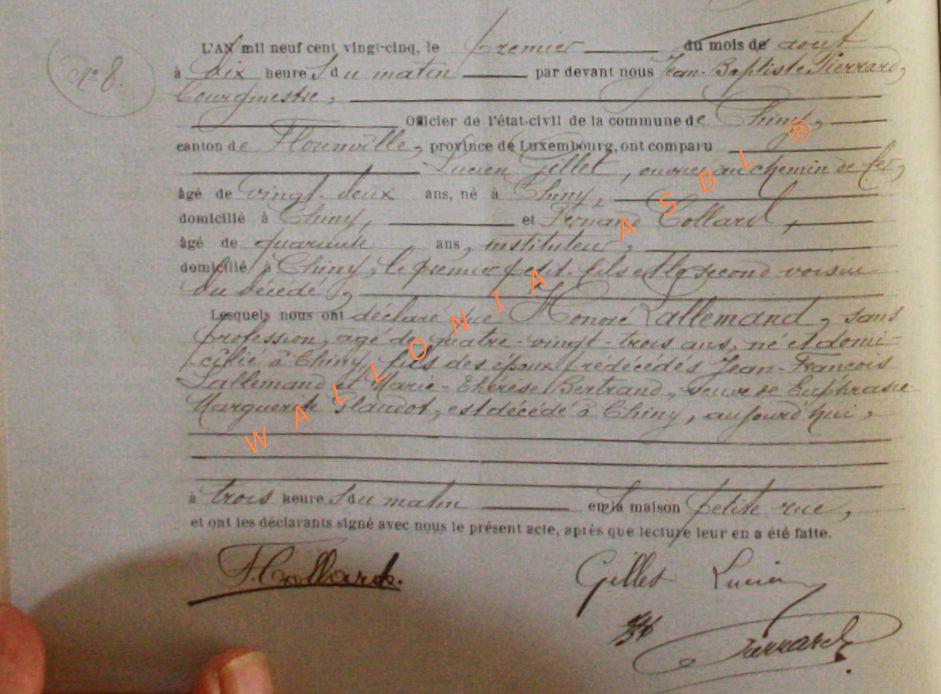 N° 8.
L'AN mil neuf cent vingt-cinq, le premier du mois de août
à dix heures du matin par devant nous Jean-Baptiste Pierrard,
bourgmestre,
Officier de l'état-civil de la commune de Chiny,
canton de Florenville, province de Luxembourg, ont comparu
Lucien Gillet, ouvrier au chemin de fer,
âgé de vingt-deux ans, né à Chiny,
domicilié à Chiny, et Fernand Collard,
âgé de quarante ans, instituteur,
domicilié à Chiny, le premier petit-fils et le second voisin
du décédé,
Lesquels nous ont déclaré que Honoré Lallemand, sans
profession, âgé de quatre-vingt-trois ans, né et domi-
cilié à Chiny, fils des époux prédécédés Jean-François
Lallemand et Marie-Thérèse Bertrand, veuf de Euphrasie
Marguerite Glaudot, est décédé à Chiny, aujourd'hui,
à trois heures du matin en la maison petite rue,
et ont les déclarants signé avec nous le présent acte, après que lecture leur en a été faite.
F. Collard. Gillet Lucien
JB Pierrard
WALLONIA ASBL ®